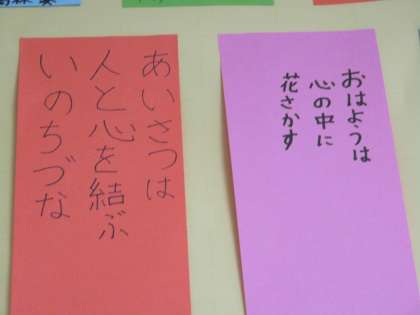 おはようは
心の中に
花さかす
あいさつは
人と心を結ぶ
いのちづな